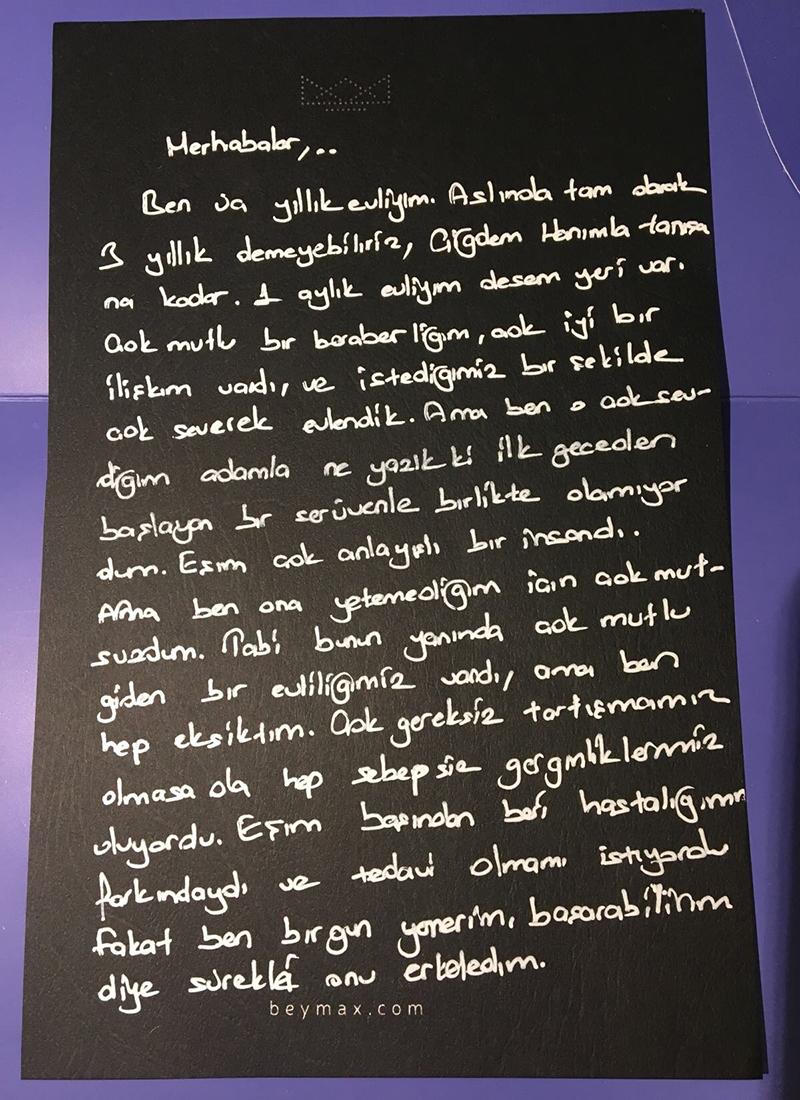 Merhabalar,..
Ben üç yıllık evliyim. Aslında tam olarak
3 yıllık demeyebiliriz, Çiğdem Hanımla tanışa
na kadar. 1 aylık evliyim desem yeri var.
Çok mutlu bir beraberliğim, çok iyi bir
ilişkim vardı, ve istediğimiz bir şekilde
çok severek evlendik. Ama ben o çok sev-
diğim adamla ne yazık ki ilk geceden
başlayan bir serüvenle birlikte olamıyor
dum. Eşim çok anlayışlı bir insandı.
Ama ben ona yetemediğim için çok mut-
suzdum. Tabi bunun yanında çok mutlu
giden bir evliliğimiz vardı, ama ben
hep eksiktim. Çok gereksiz tartışmamız
olmasa da hep sebepsiz gerginliklerimiz
oluyordu. Eşim başından beri hastalığımın
farkındaydı ve tedavi olmamı istiyordu
fakat ben birgün yenerim, başarabilirim
diye sürekli onu erteledim.
beymax.com